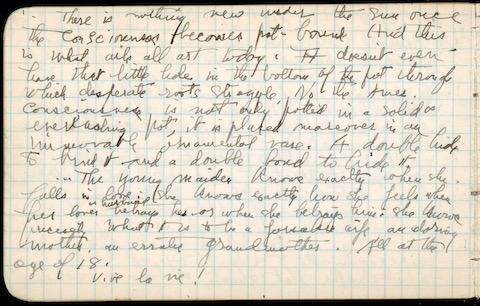 There is nothing new under the sun once
the consciousness becomes pot-bound. And this
is what ails all art today. It doesn't even
have that little hole in the bottom of the pot through
which desperate roots straggle. No the
consciousness is not only potted in a solid &
everlasting pot, it is placed moreover in an
immovable ornamental vase. A double hide
to bind it and a double bond to hide it.
... The young maiden knows exactly when she
falls in love: she knows exactly how she feels when
her lover or husband betrays her or when she betrays him: she knows
precisely what it is to be a forsaken wife, an adoring
mother, an erratic grandmother. All at the
age of 18.
Vive la vie!